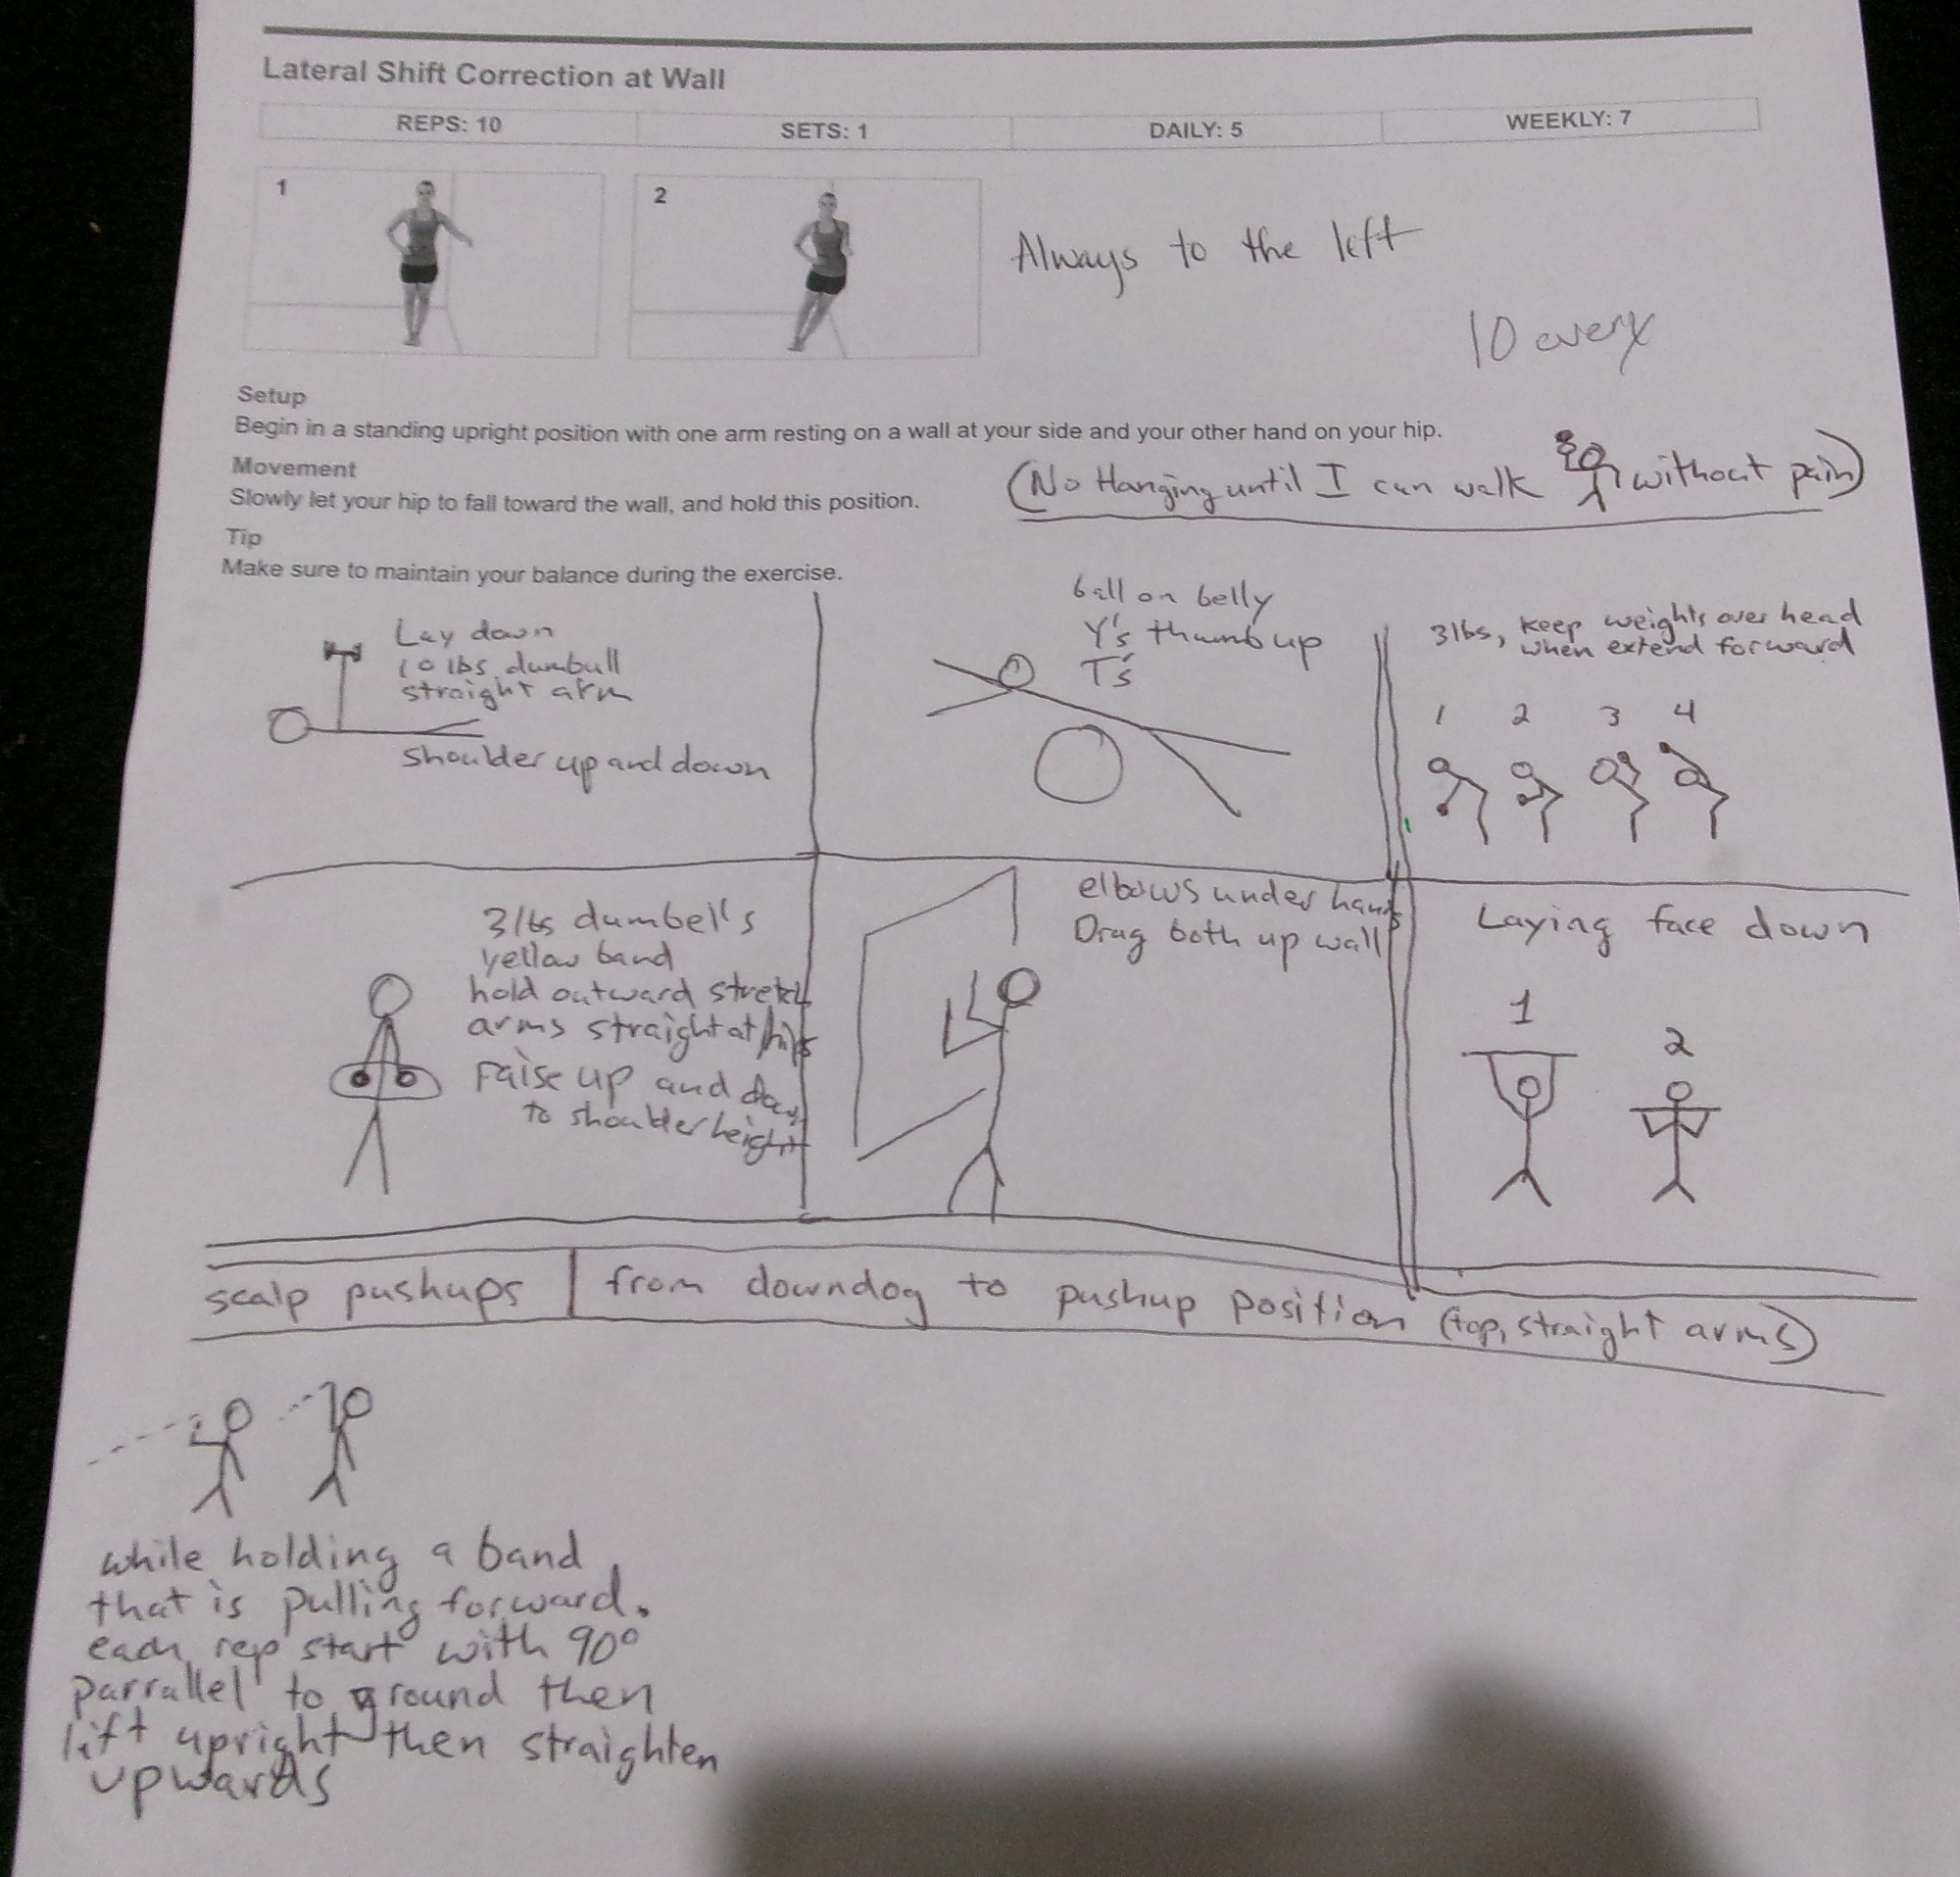 Lateral Shift Correction at Wall
REPS: 10 SETS: 1 DAILY: 5 WEEKLY: 7
1 2
Always to the left
10 every
Setup
Begin in a standing upright position with one arm resting on a wall at your side and your other hand on your hip.
Movement
Slowly let your hip to fall toward the wall, and hold this position.
(No Hanging until I can walk without pain)
Tip
Make sure to maintain your balance during the exercise.
Lay down
10 lbs dumbull
straight arm
shoulder up and down
ball on belly
Y's thumb up
T's
3lbs, keep weights over head
when extend forward
1 2 3 4
3lbs dumbell's
yellow band
hold outward stretch
arms straight at hips
raise up and down
to shoulder height
elbows under hands
Drag both up wall
Laying face down
1
2
scalp pushups | from downdog to pushup position (top, straight arms)
while holding a band
that is pulling forward.
each rep start with 90°
parrallel to ground then
lift upright then straighten
upwards